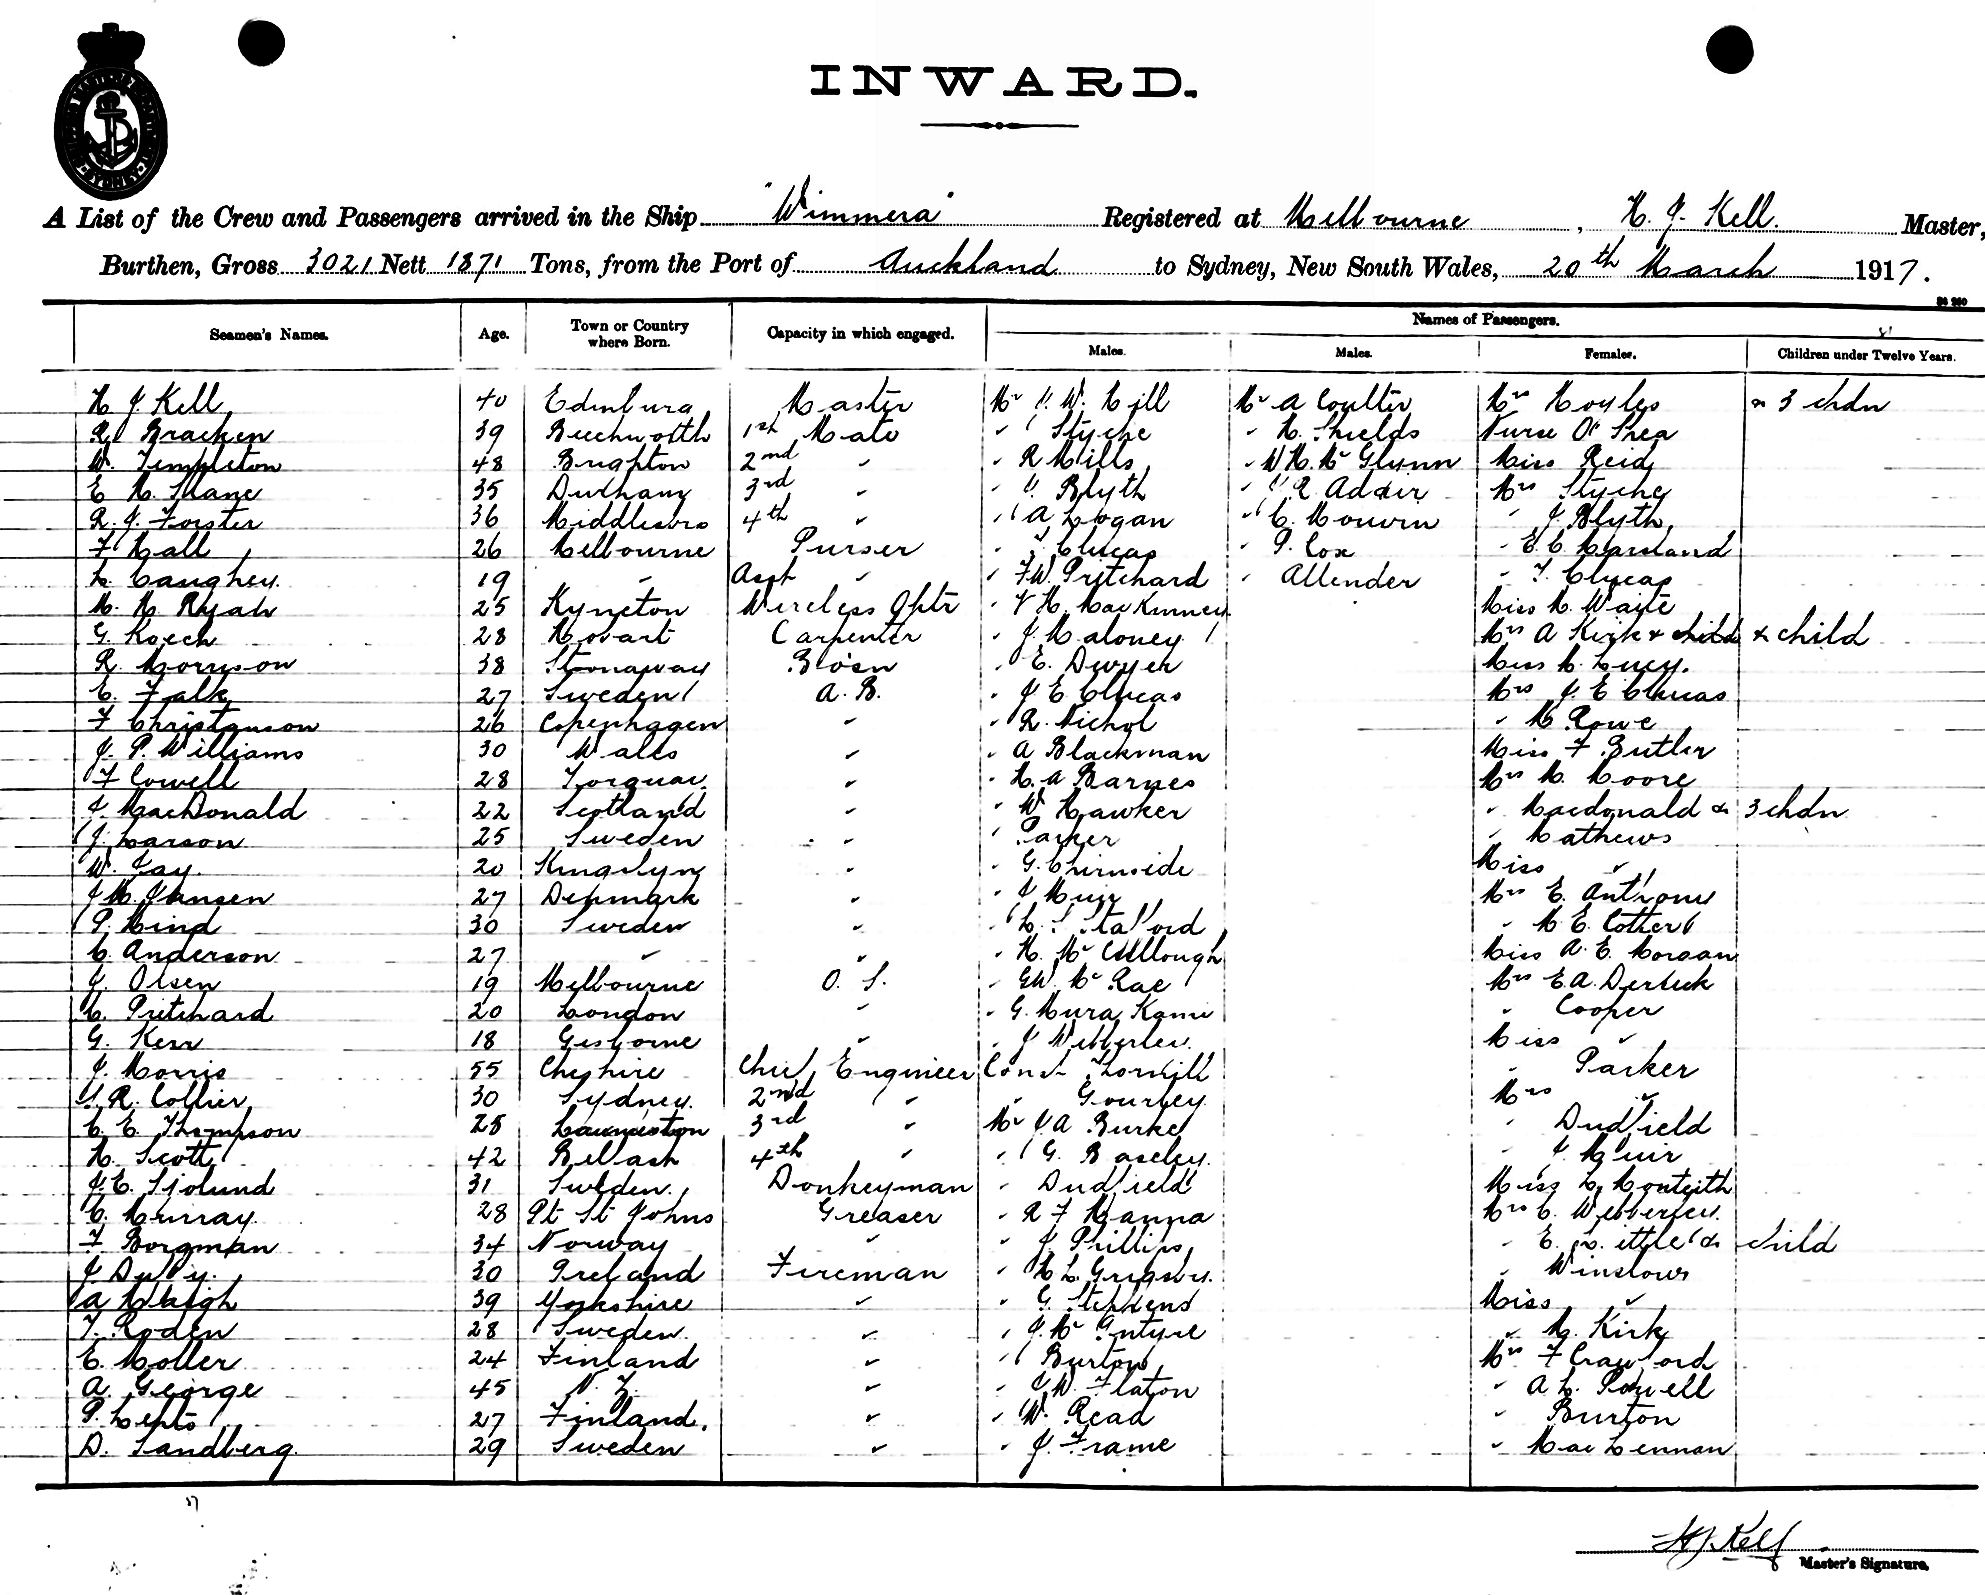 INWARD.
A List of the Crew and Passengers arrived in the Ship "Wimmera" Registered at Melbourne, H. J. Kell. Master,
Burthen, Gross 3021 Nett 1871 Tons, from the Port of Auckland to Sydney, New South Wales, 20th March 1917.
Seamen's Names. Age. Town or Country where Born. Capacity in which engaged. Names of Passengers.
Males. Males. Females. Children under Twelve Years.
H. J. Kell 40 Edinburg Master Mr J. W. Hill Mr A Coulter Mrs Hoyles & 3 chdn
R Bracken 39 Beechworth 1st Mate " Styche " H. Shields Nurse O'Shea
W. Templeton 48 Brighton 2nd " " R Mills " W H. Mc Glynn Miss Reid
E H. Slane 35 3rd " " J. Blyth " J R Adair Mrs Styche
R. J. Forster 36 Middlesbro 4th " " A Logan " C. " J Blyth
F Hall 26 Melbourne Purser " T Clucas " P. Cox " E. C. Marsland
L Caughey 19 " Asst " " F W. Pritchard " Allender " T. Clucas
M. H Ryan 25 Kyneton Wireless Optr " V H. MacKinney Miss M. Waite
G Koech 28 Hobart Carpenter " J Maloney Mrs A Kirk & child & child
R. Morrison 38 Stornaway Bosn " E. Dwyer Miss M. Lucy.
C. Falk 27 Sweden A. B. " J E Clucas Mrs J. E Clucas
F Christenson 26 Copenhagen " " R. Nichol " M Rowe
J. P. Williams 30 Wales " " A Blackman Miss F Butler
F Cowell 28 Torquay " " H. A Barnes Mrs M. Moore
J. MacDonald 22 Scotland " " W Hawker " Macdonald & 3 chdn
J. Larson 25 Sweden " " Parker " Mathews
W. Fay. 20 Kingslyn " " G. Chirnside Miss "
J M. Jansen 27 Denmark " " J Muir Mrs E. Anthony
P. Hind 30 Sweden " " L. S. Stafford " M E. Cotterl
C. Anderson 27 " " " H. Mc Cullough Miss A. E. Morgan
J. Olsen 19 Melbourne O. S. " G W. Mc Rae Mrs E A.
C. Pritchard 20 London " " G. Mura Kami " Cooper
G. Kerr 18 Gisborne " " J Webberley. Miss "
J. Morris 55 Cheshire Chief Engineer Const Tornhill " Parker
J. R. Collier 30 Sydney. 2nd " " Gourley Mrs "
C. E. Thompson 28 Launceston 3rd " Mr J. A Burke " Dudfield
H. Scott 42 Belfast 4th " " G. Baseley. " J. Muir
J. E. Sjolund 31 Sweden. Donkeyman " Dudfield Miss L. Monteith
C. Murray. 28 Pt St Johns Greaser " R F Hanna Mrs C. Webberley.
F. Borgman 34 Norway " " J Phillips " E. Little & child
J Duffy. 30 Ireland Fireman " H L. Grigsby. " Winslow
A Haigh 39 Yorkshire " " G. Stephens Miss "
T. Roden 28 Sweden. " " J. Mc Intyre " M. Kirk
E. Moller 24 Finland " " Burton Mrs F Crawford
A. George 45 N. Z. " " J W. Flaton " A L. Powell
P. Lehto 27 Finland. " " W. Read " Burton
D. Sandberg. 29 Sweden " " J. Frame " Mac Lennan
H J. Kell
Master's Signature.